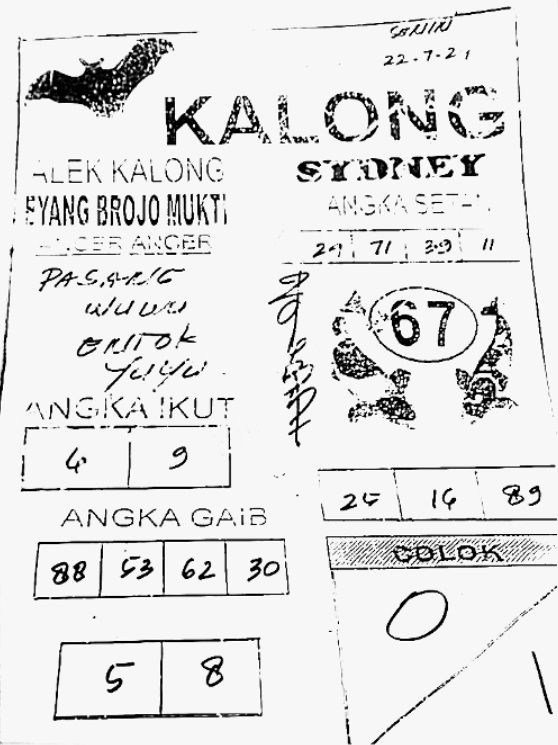 SENIN
22-7-21
KALONG
ALEK KALONG
SYDNEY
EYANG BROJO MUKTI
ANGKA SETAN
ANGER ANGER
29 71 39 11
67
WUWU
ENTOK
YUYU
ANGKA IKUT
4 9
25 16 89
ANGKA GAIB
COLOK
88 53 62 30
0
5 8
1